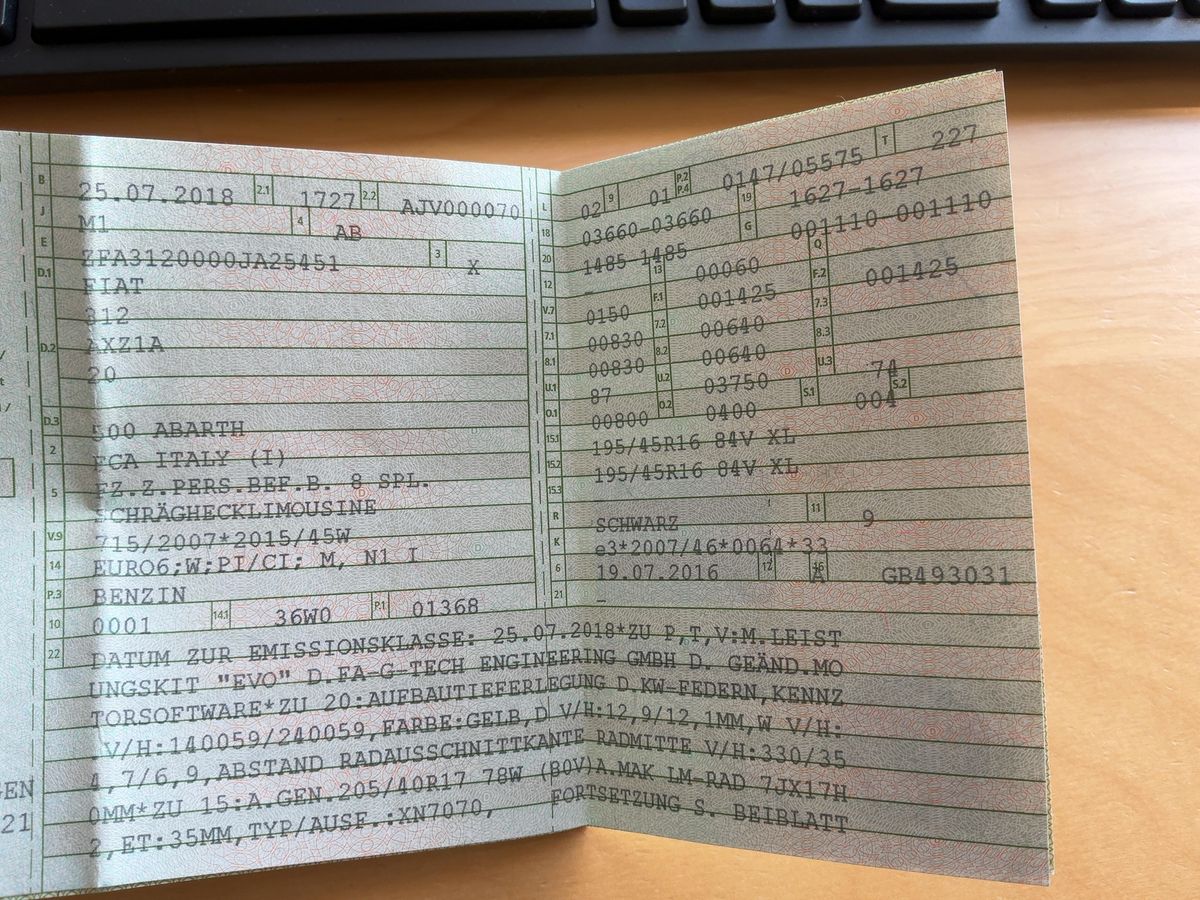 B 25.07.2018 2.1 1727 2.2 AJV000070
J M1 4 AB
E ZFA3120000JA25451 3 X
D.1 FIAT
312
D.2 AXZ1A
20
D.3 500 ABARTH
2 FCA ITALY (I)
5 FZ.Z.PERS.BEF.B. 8 SPL.
SCHRÄGHECKLIMOUSINE
V.9 715/2007*2015/45W
14 EURO6;W;PI/CI; M, N1 I
P.3 BENZIN
10 0001 14.1 36W0 P.1 01368
L 02 9 01 P.2 P.4 0147/05575 T 227
18 03660-03660 19 1627-1627
20 1485-1485 G 001110-001110
12 – 13 00060 Q
V.7 0150 F.1 001425 F.2 001425
7.1 00830 7.2 00640 7.3
8.1 00830 8.2 00640 8.3
U.1 87 U.2 03750 U.3 74
O.1 00800 O.2 0400 S.1 004 S.2
15.1 195/45R16 84V XL
15.2 195/45R16 84V XL
15.3
R SCHWARZ 11 9
K e3*2007/46*0064*33
6 19.07.2016 12 A 16 GB493031
21 –
22 DATUM ZUR EMISSIONSKLASSE: 25.07.2018*ZU P,T,V:M.LEIST
UNGSKIT "EVO" D.FA-G-TECH ENGINEERING GMBH D. GEÄND.MO
TORSOFTWARE*ZU 20:AUFBAUTIEFERLEGUNG D.KW-FEDERN,KENNZ
V/H:140059/240059,FARBE:GELB,D V/H:12,9/12,1MM,W V/H:
4,7/6,9,ABSTAND RADAUSSCHNITTKANTE RADMITTE V/H:330/35
0MM*ZU 15:A.GEN.205/40R17 78W (80V)A.MAK LM-RAD 7JX17H
2,ET:35MM,TYP/AUSF.:XN7070, FORTSETZUNG S. BEIBLATT
GEN
21